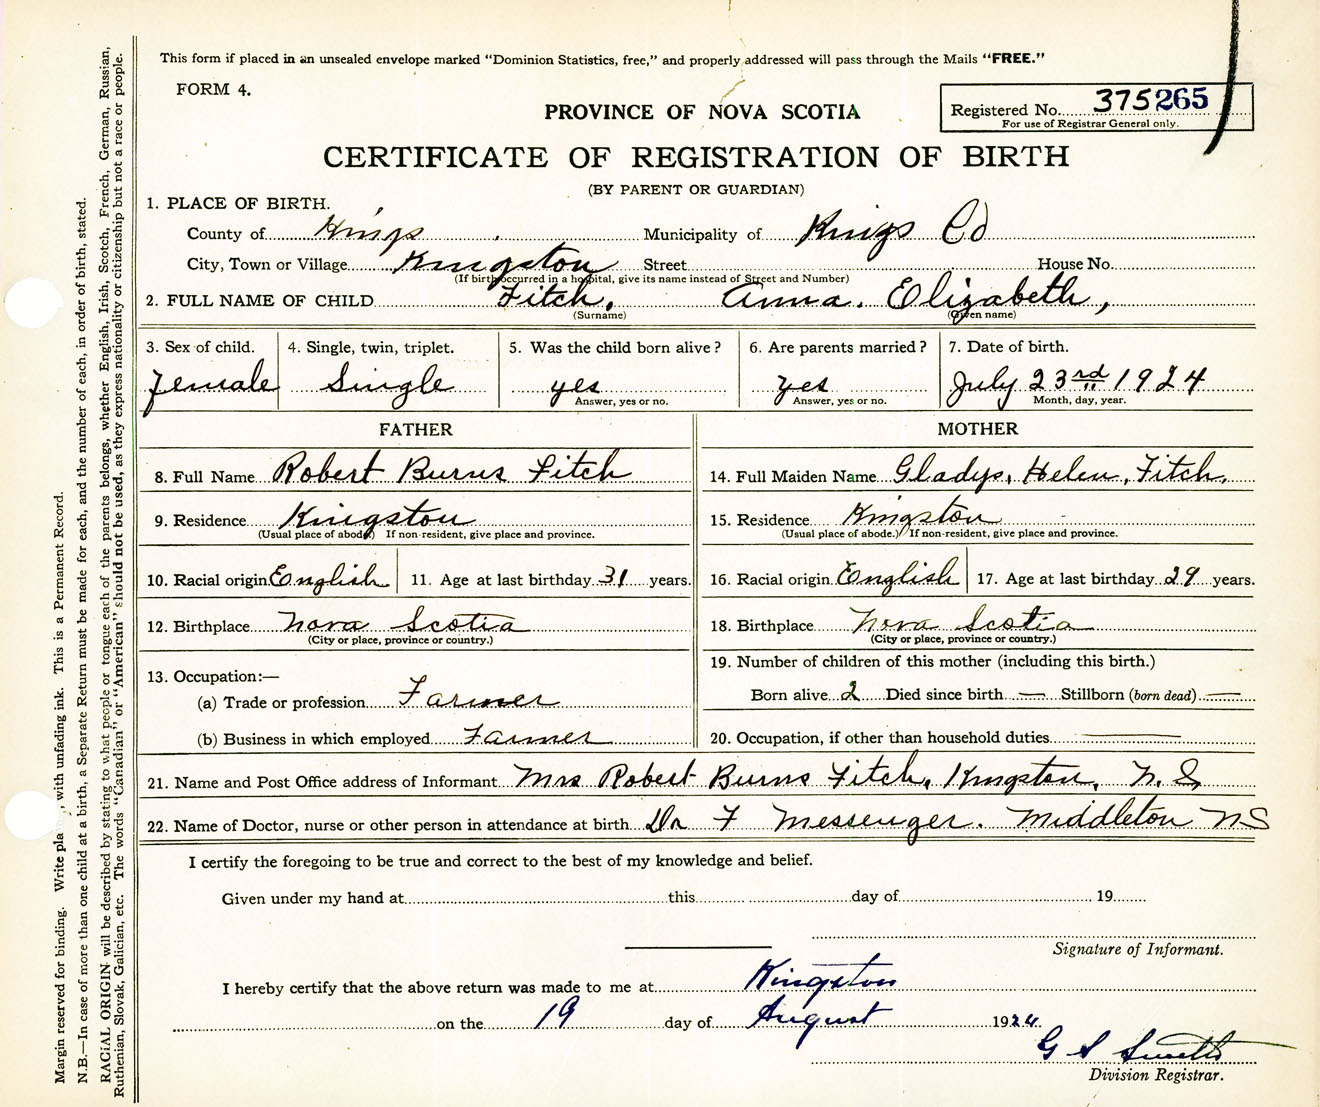 This form if placed in an unsealed envelope marked "Dominion Statistics, free," and properly addressed will pass through the Mails "FREE."
FORM 4.
Registered No. 375265
For use of Registrar General only.
PROVINCE OF NOVA SCOTIA
CERTIFICATE OF REGISTRATION OF BIRTH
(BY PARENT OR GUARDIAN)
1. PLACE OF BIRTH.
County of Kings Municipality of Kings Co
City, Town or Village Kingston Street House No.
(If birth occurred in a hospital, give its name instead of Street and Number)
2. FULL NAME OF CHILD Fitch, Anna. Elizabeth,
(Surname) (Given name)
3. Sex of child. 4. Single, twin, triplet. 5. Was the child born alive? 6. Are parents married? 7. Date of birth.
female Single yes yes July 23rd 1924
Answer, yes or no. Answer, yes or no. Month, day, year.
FATHER MOTHER
8. Full Name Robert Burns Fitch 14. Full Maiden Name Gladys, Helen, Fitch,
9. Residence Kingston 15. Residence Kingston
(Usual place of abode) If non-resident, give place and province. (Usual place of abode.) If non-resident, give place and province.
10. Racial origin English 11. Age at last birthday 31 years. 16. Racial origin English 17. Age at last birthday 29 years.
12. Birthplace Nova Scotia 18. Birthplace Nova Scotia
(City or place, province or country.) (City or place, province or country.)
13. Occupation:— 19. Number of children of this mother (including this birth.)
(a) Trade or profession Farmer Born alive 2 Died since birth — Stillborn (born dead) —
(b) Business in which employed Farmer 20. Occupation, if other than household duties —
21. Name and Post Office address of Informant Mrs Robert Burns Fitch, Kingston, N.S.
22. Name of Doctor, nurse or other person in attendance at birth Dr F Messenger. Middleton NS
I certify the foregoing to be true and correct to the best of my knowledge and belief.
Given under my hand at this day of 19
Signature of Informant.
I hereby certify that the above return was made to me at Kingston
on the 19 day of August 1924.
G S Smith
Division Registrar.
Margin reserved for binding. Write pla , with unfading ink. This is a Permanent Record.
N.B.—In case of more than one child at a birth, a Separate Return must be made for each, and the number of each, in order of birth, stated.
RACIAL ORIGIN will be described by stating to what people or tongue each of the parents belongs, whether English, Irish, Scotch, French, German, Russian,
Ruthenian, Slovak, Galician, etc. The words "Canadian" or "American" should not be used, as they express nationality or citizenship but not a race or people.